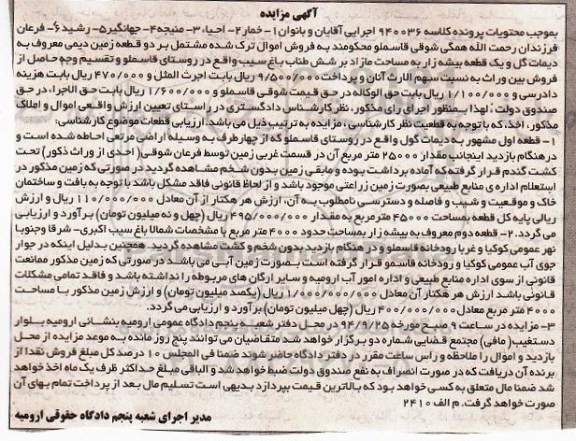 آگهی مزایده
بموجب محتویات پرونده کلاسه ۹۴۰۰۳۶ اجرایی آقایان و بانوان ۱- خمار ۲- احیاء ۳- منیجه ۴- جهانگیر ۵- رشید ۶- فرعان
فرزندان رحمت الله همگی شوقی قاسملو محکومند به فروش اموال ترک شده مشتمل بر دو قطعه زمین دیمی معروف به
دیمات گل و یک قطعه بیشه زار به مساحت مازاد بر شش طناب باغ سیب واقع در روستای قاسملو و تقسیم وجه حاصل از
فروش بین وراث به نسبت سهم الارث آنان و پرداخت ۹/۵۰۰/۰۰۰ ریال بابت اجرت المثل و ۴۷۰/۰۰۰ ریال بابت هزینه
دادرسی و ۱/۱۰۰/۰۰۰ ریال بابت حق الوکاله در حق قیمت شوقی قاسملو و ۱/۶۰۰/۰۰۰ ریال بابت حق الاجراء در حق
صندوق دولت؛ لهذا بمنظور اجرای رای مذکور، نظر کارشناس دادگستری در راستای تعیین ارزش واقعی اموال و املاک
مذکور، اخذ، که با توجه به قطعیت نظر کارشناسی، مزایده به ترتیب ذیل می باشد. ارزیابی قطعات موضوع کارشناسی:
۱- قطعه اول مشهور به دیمات گول واقع در روستای قاسملو که از چهار طرف به وسیله اراضی مرتعی احاطه شده است و
در هنگام بازدید اینجانب مقدار ۲۵۰۰۰ متر مربع آن در قسمت غربی زمین توسط فرعان شوقی (احدی از وراث ذکور) تحت
کشت گندم قرار گرفته که آماده برداشت بوده و مابقی زمین بدون شخم مشاهده گردید در صورتی که زمین مذکور در
استعلام اداره ی منابع طبیعی بصورت زمین زراعتی موجود باشد و از لحاظ قانونی فاقد مشکل باشد با توجه به بافت و ساختمان
خاک و موقعیت و شیب و فاصله و دسترسی نامطلوب به آن، ارزش هر هکتار از آن معادل ۱۱۰/۰۰۰/۰۰۰ ریال و ارزش
ریالی پایه کل قطعه بمساحت ۴۵۰۰۰ متر مربع به مقدار ۴۹۵/۰۰۰/۰۰۰ ریال (چهل و نه میلیون تومان) برآورد و ارزیابی
می گردد. ۲- قطعه دوم معروف به بیشه زار بمساحت حدود ۴۰۰۰ متر مربع با مشخصات شمالا باغ سیب اکبری- شرقا وجنوبا
نهر عمومی کوکیا و غربا رودخانه قاسملو و در هنگام بازدید بدون شخم و کشت مشاهده گردید همچنین بدلیل اینکه در جوار
جوی آب عمومی کوکیا و رودخانه قاسملو قرار گرفته است بصورت زمین آبی می باشد در صورتی که زمین مذکور ممانعت
قانونی از سوی اداره منابع طبیعی و اداره امور آب ارومیه و سایر ارگان های مربوطه را نداشته باشد و فاقد تمامی مشکلات
قانونی باشد ارزش هر هکتار آن معادل ۱/۰۰۰/۰۰۰/۰۰۰ ریال (یکصد میلیون تومان) و ارزش زمین مذکور با مساحت
۴۰۰۰ متر مربع معادل ۴۰۰/۰۰۰/۰۰۰ ریال (چهل میلیون تومان) برآورد و ارزیابی می گردد.
۳- مزایده در ساعت ۹ صبح مورخه ۹۴/۹/۲۵ در محل دفتر شعبه پنجم دادگاه عمومی ارومیه بنشانی ارومیه بلوار
دستغیب (مافی) مجتمع قضایی شماره دو برگزار خواهد شد متقاضیان می توانند پنج روز مانده به موعد مزایده از محل
بازدید و اموال را ملاحظه و راس ساعت مقرر در دفتر دادگاه حاضر شوند ضمنا فی المجلس ۱۰ درصد کل مبلغ فروش نقدا از
برنده آن دریافت که در صورت انصراف به نفع صندوق دولت ضبط خواهد شد و الباقی مبلغ حداکثر ظرف یک ماه اخذ خواهد
شد ضمنا مال متعلق به کسی خواهد بود که بالاترین قیمت بپردازد بدیهی است تسلیم مال بعد از پرداخت تمام بهای آن
صورت خواهد گرفت. م الف ۲۴۱۰
مدیر اجرای شعبه پنجم دادگاه حقوقی ارومیه